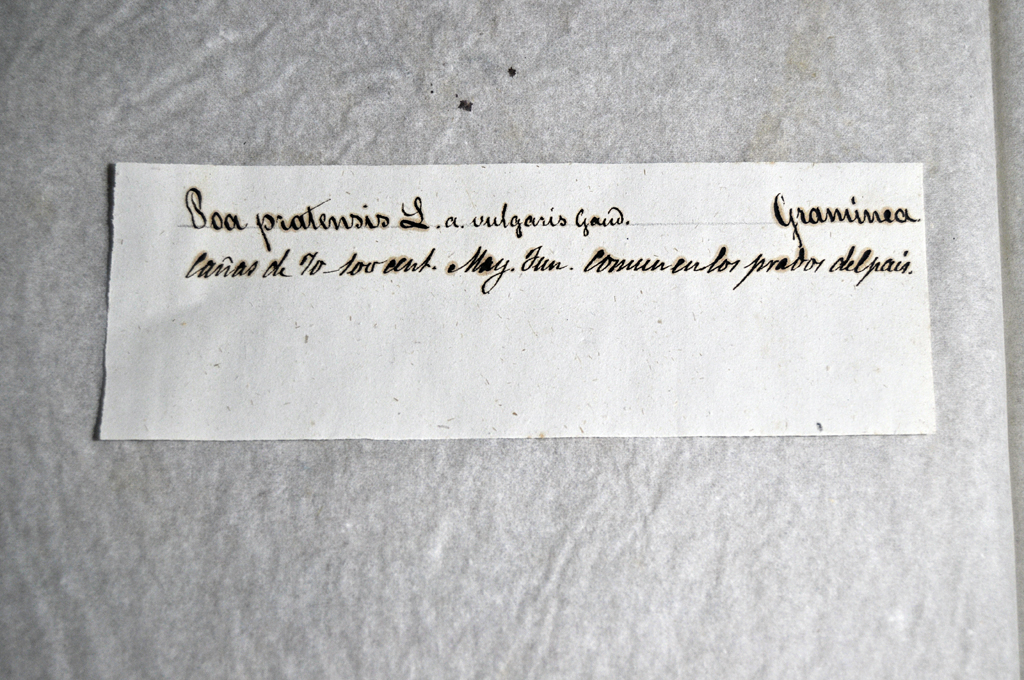 Poa pratensis L. a. vulgaris Gaud. Graminea
Cañas de 70 100 cent. May. Jun. Comun en los prados del país.